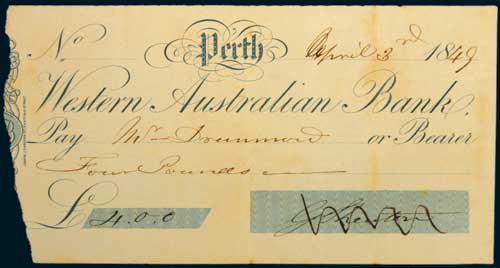 No.
Perth
April 3rd 1849
Western Australian Bank.
Pay Mr Drummond or Bearer
Four Pounds
£ 4.0.0